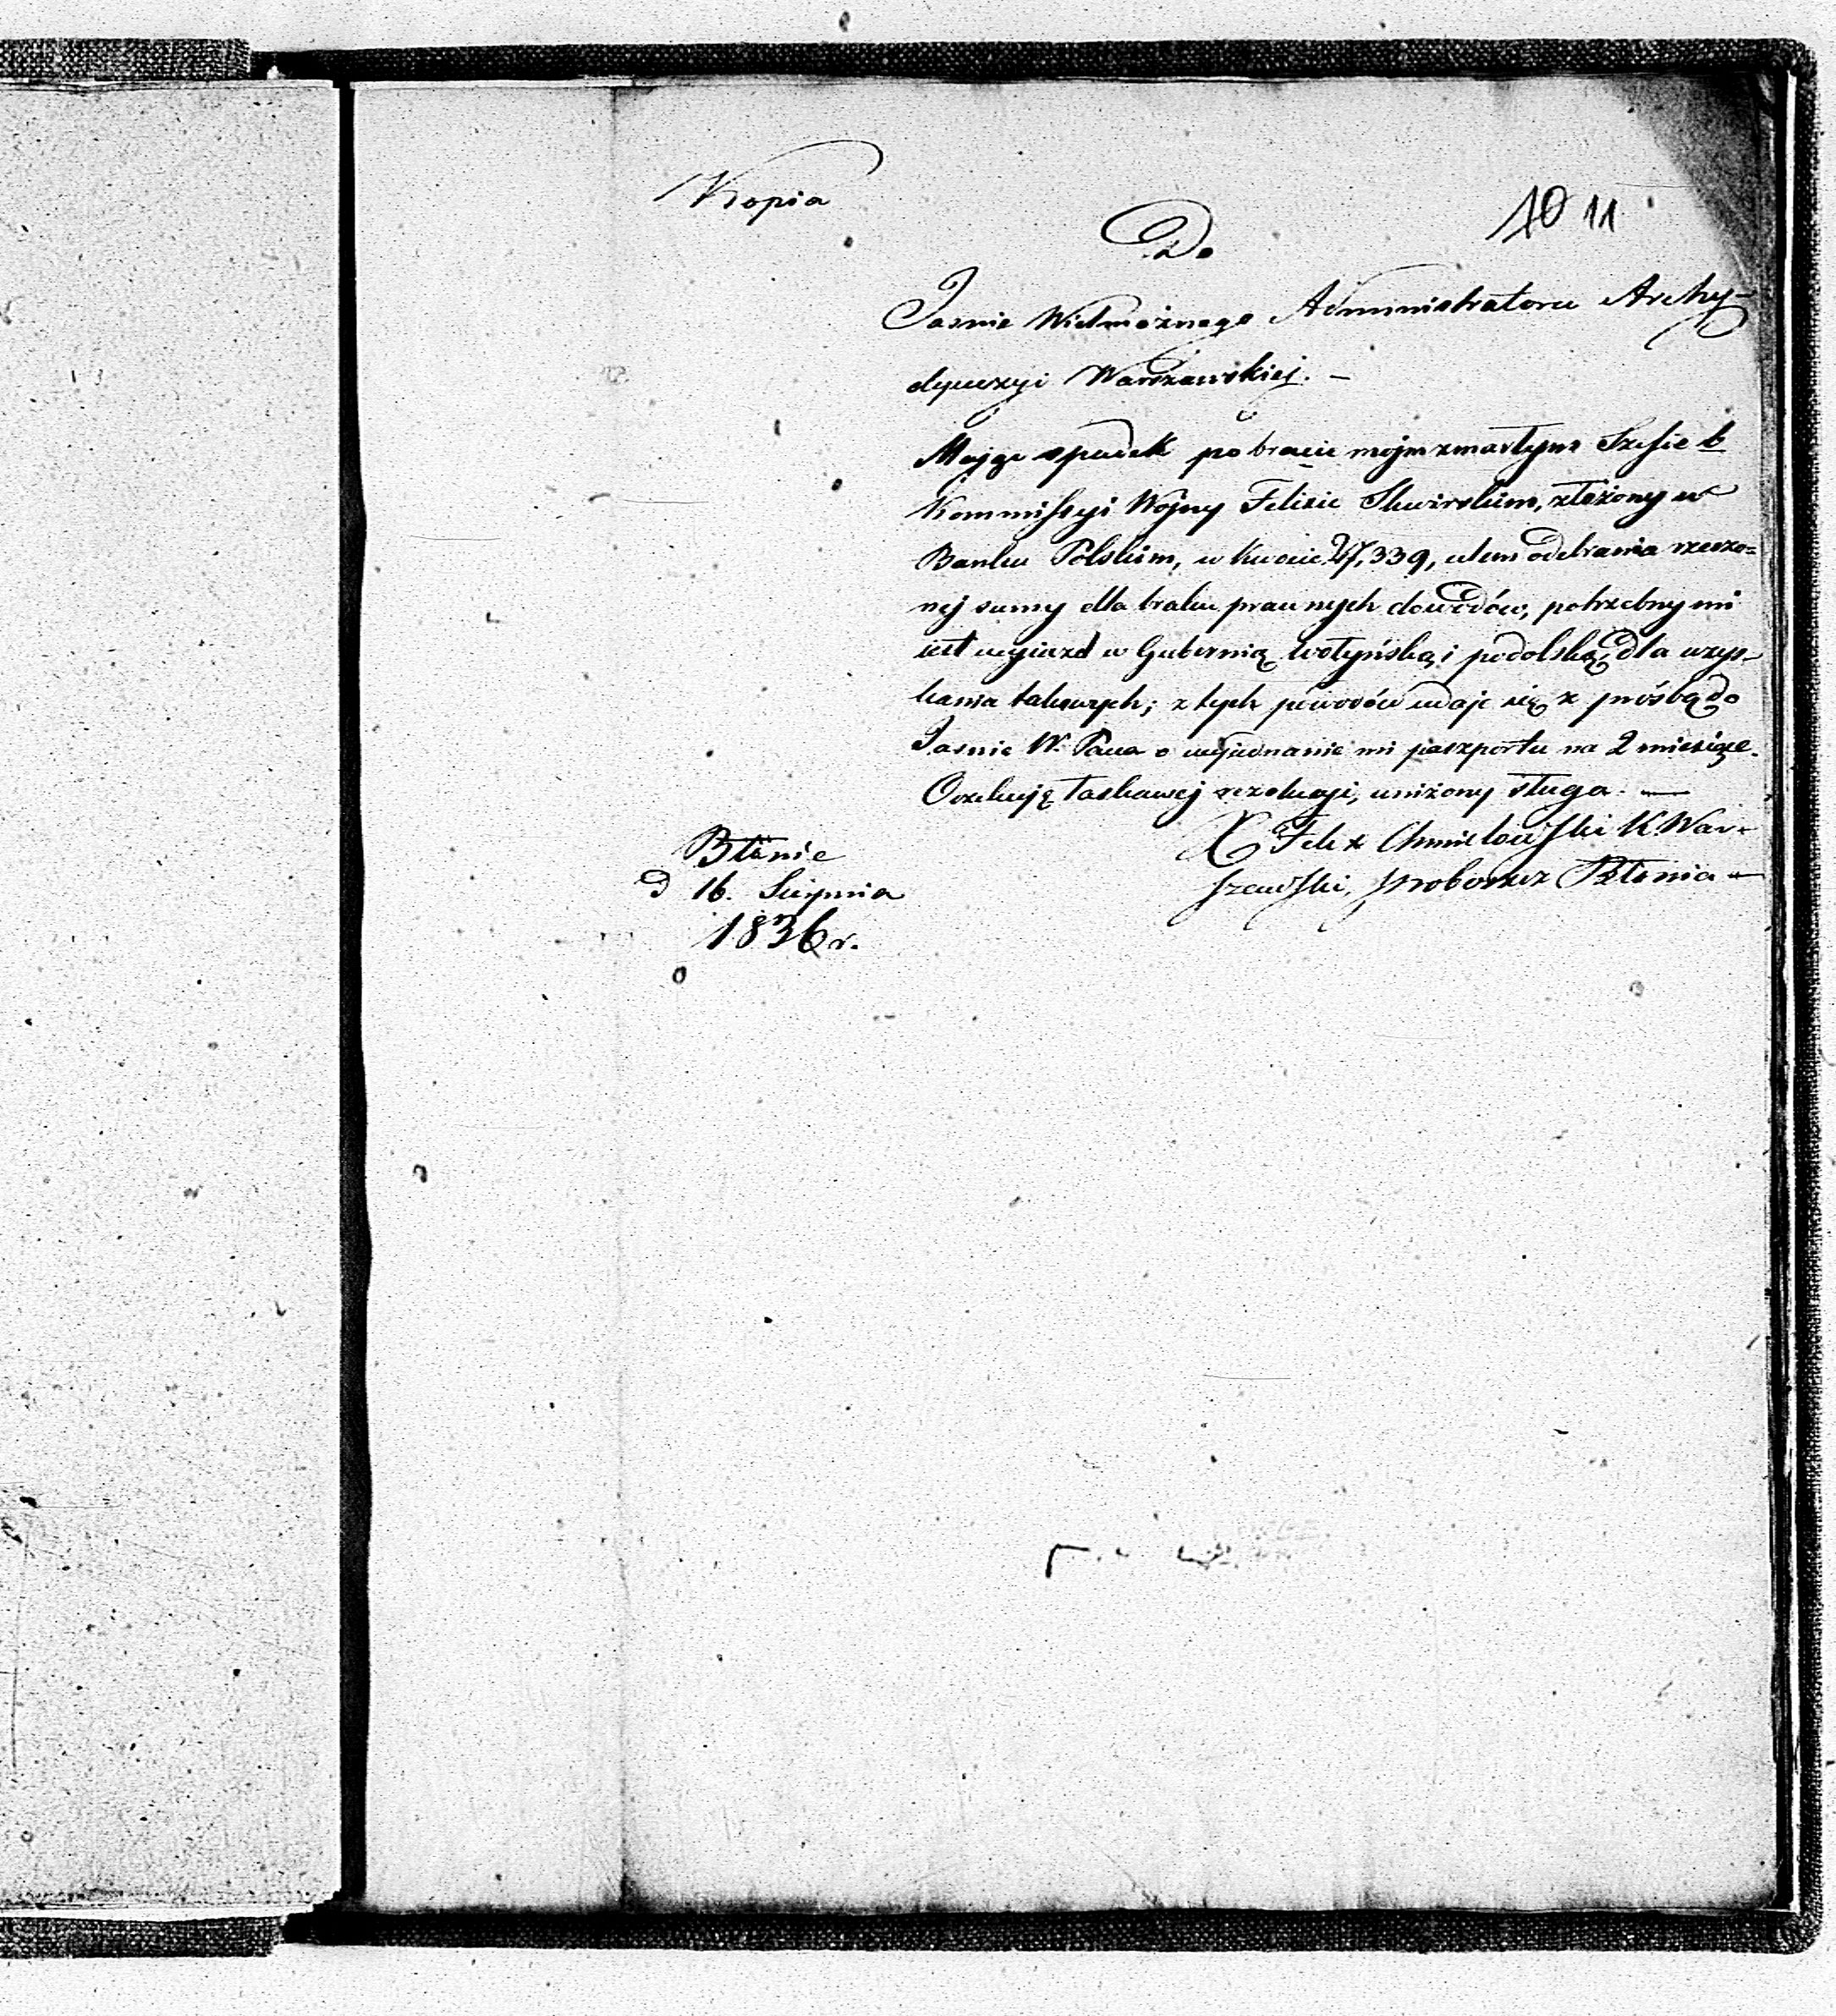 Kopia
10 11
Do
Jasnie Wielmożnego Administratora Archy-
dyecezyi Warszawskiej. –
Mając spadek po bracie mojm zmarłym Szefie b
Kommissyi Wojny Felixie Skwirskim, złożony w
Banku Polskim, w kwocie 339, celem odebrania rzeczo=
nej sumy dla braku prawnych dowodów, potrzebny mi
iest wyiazd w Gubernią Wołyńską i podolską, dla uzys-
kania takowych; z tych powodów udaję się z prośbą do
Jasnie W. Pana o wyjednanie mi paszportu na 2 miesiące.
Oczekuję łaskawej rezolucyi, uniżony sługa. —
X Felix Chmielowski K. War-
szawski, proboszcz Błonia —
Błonie
d 16. Sierpnia
1836 r.